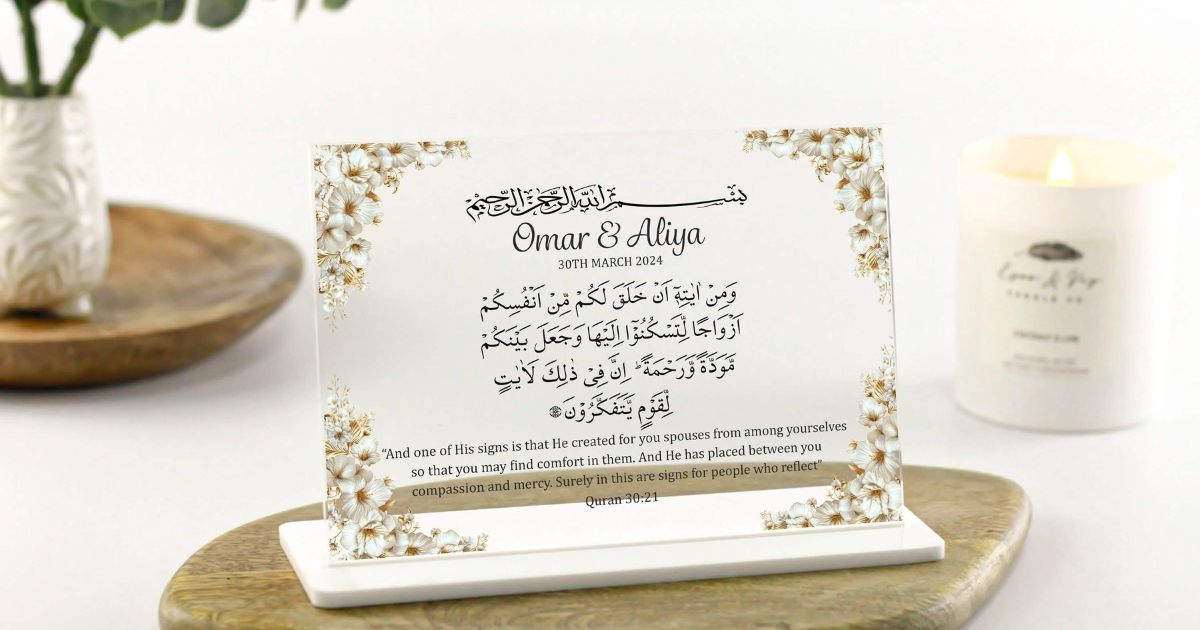 بسم الله الرحمن الرحيم
Omar & Aliya
30TH MARCH 2024
وَمِنْ اٰيٰتِهٖٓ اَنْ خَلَقَ لَكُمْ مِّنْ اَنْفُسِكُمْ
اَزْوَاجًا لِّتَسْكُنُوْٓا اِلَيْهَا وَجَعَلَ بَيْنَكُمْ
مَّوَدَّةً وَّرَحْمَةً ؕ اِنَّ فِيْ ذٰلِكَ لَاٰيٰتٍ
لِّقَوْمٍ يَّتَفَكَّرُوْنَ
“And one of His signs is that He created for you spouses from among yourselves
so that you may find comfort in them. And He has placed between you
compassion and mercy. Surely in this are signs for people who reflect”
Quran 30:21
CANDLE CO